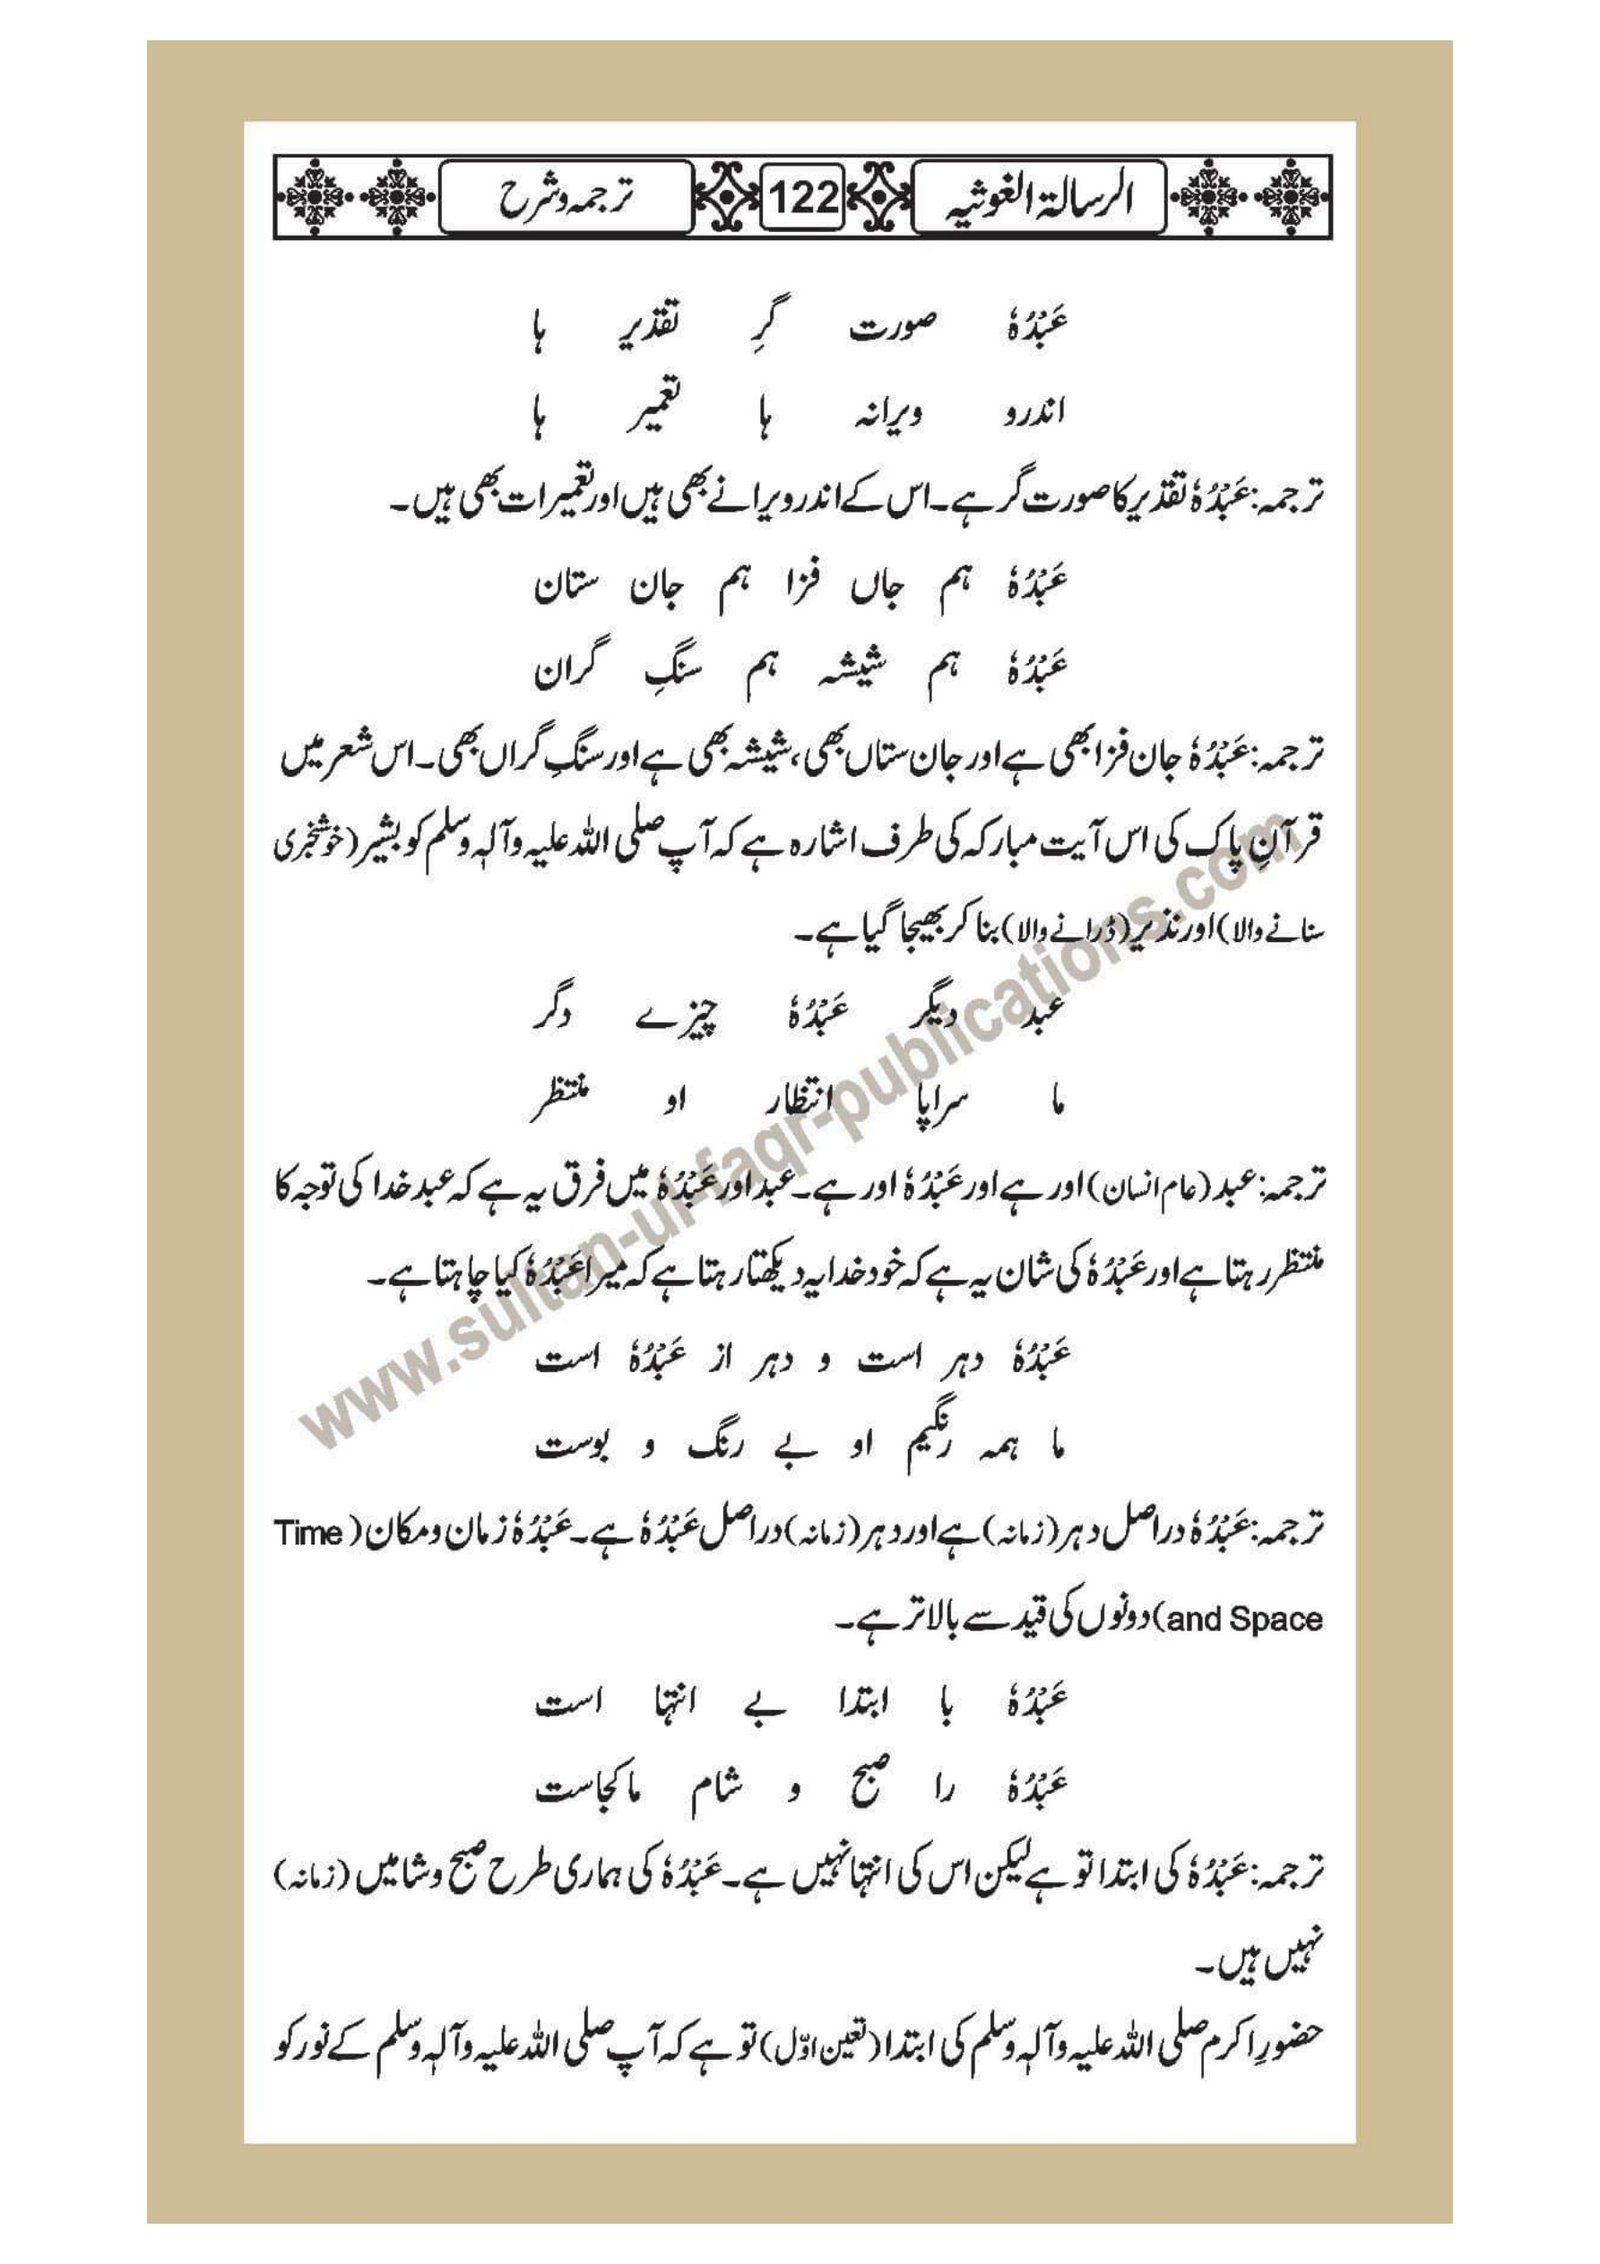 الرسالۃ الغوثیہ 122 ترجمہ و شرح
عَبْدُہٗ صورت گرِ تقدیر ہا
اندرو ویرانہ ہا تعمیر ہا
ترجمہ: عَبْدُہٗ تقدیر کا صورت گر ہے۔ اس کے اندر ویرانے بھی ہیں اور تعمیرات بھی ہیں۔
عَبْدُہٗ ہم جاں فزا ہم جان ستان
عَبْدُہٗ ہم شیشہ ہم سنگِ گران
ترجمہ: عَبْدُہٗ جان فزا بھی ہے اور جان ستاں بھی، شیشہ بھی ہے اور سنگِ گراں بھی۔ اس شعر میں
قرآنِ پاک کی اس آیت مبارکہ کی طرف اشارہ ہے کہ آپ صلی اللہ علیہ وآلہٖ وسلم کو بشیر (خوشخبری
سنانے والا) اور نذیر (ڈرانے والا) بنا کر بھیجا گیا ہے۔
عبد دیگر عَبْدُہٗ چیزے دگر
ما سراپا انتظار او منتظر
ترجمہ: عبد (عام انسان) اور ہے اور عَبْدُہٗ اور ہے۔ عبد اور عَبْدُہٗ میں فرق یہ ہے کہ عبد خدا کی توجہ کا
منتظر رہتا ہے اور عَبْدُہٗ کی شان یہ ہے کہ خود خدا یہ دیکھتا رہتا ہے کہ میرا عَبْدُہٗ کیا چاہتا ہے۔
عَبْدُہٗ دہر است و دہر از عَبْدُہٗ است
ما ہمہ رنگیم او بے رنگ و بوست
ترجمہ: عَبْدُہٗ دراصل دہر (زمانہ) ہے اور دہر (زمانہ) دراصل عَبْدُہٗ ہے۔ عَبْدُہٗ زمان و مکان (Time
and Space) دونوں کی قید سے بالاتر ہے۔
عَبْدُہٗ با ابتدا بے انتہا است
عَبْدُہٗ را صبح و شام ما کجاست
ترجمہ: عَبْدُہٗ کی ابتدا تو ہے لیکن اس کی انتہا نہیں ہے۔ عَبْدُہٗ کی ہماری طرح صبح و شامیں (زمانہ)
نہیں ہیں۔
حضورِ اکرم صلی اللہ علیہ وآلہٖ وسلم کی ابتدا (تعین اوّل) تو ہے کہ آپ صلی اللہ علیہ وآلہٖ وسلم کے نور کو
www.sultan-ul-faqr-publications.com